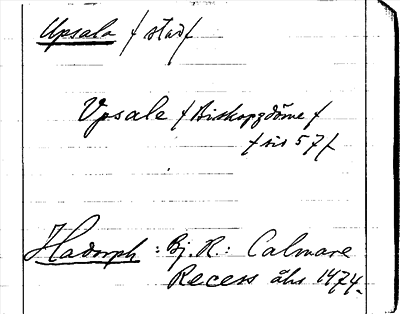 Upsala /stad/
Vpsale /Biskopzdöme/
/sid 57/
Hadorph: Bj. R.: Calmare
Recess åhr 1474.